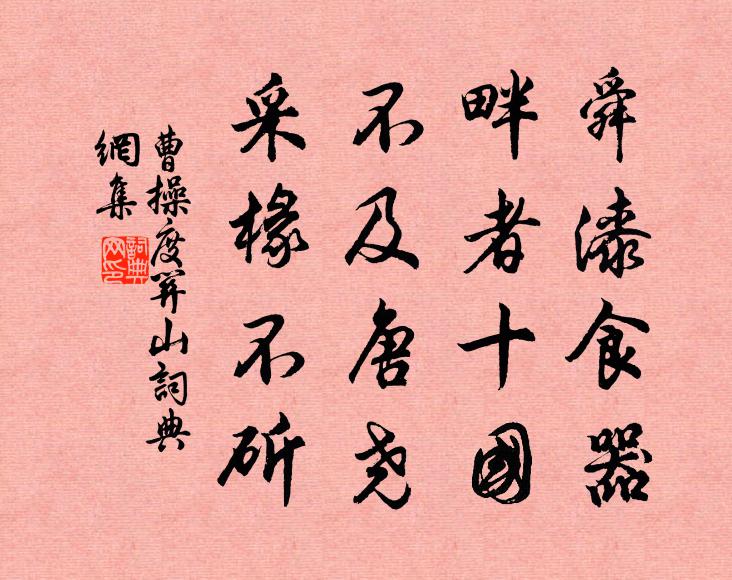 舜漆食器
畔者十國
不及唐堯
采椽不斫
曹操度関山詞典
網集
詞典網印